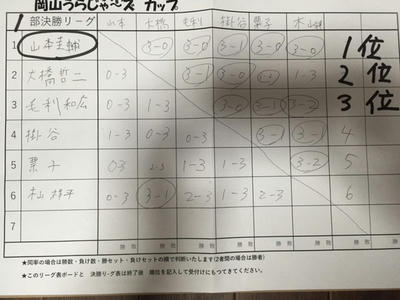 岡山うらじゃ〜ズ カップ
1 部決勝リーグ 山本 大橋 毛利 掛谷 栗子 木山
1 山本圭輔 3-0 3-0 3-1 3-0 3-0 1位
2 大橋哲二 0-3 3-1 3-0 1-3 2位
3 毛利和広 0-3 1-3 3-0 3-1 3-2 3位
4 掛谷 1-3 0-3 0-3 3-1 3-1 4
5 栗子 0-3 1-3 1-3 3-2 5
6 0-3 3-1 2-3 1-3 2-3 6
7
勝 敗 勝 敗 勝 敗 勝 敗 勝 敗 勝 敗
★同率の場合は勝数・負け数・勝セット・負けセットの順で判断いたします(2者間の場合は勝者)
★このリーグ表ボードと 決勝リーグ表は終了後 順位を記入して受付けにもってきてください。